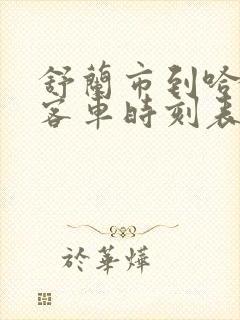 舒蘭市到哈
客車時刻表
於華燁